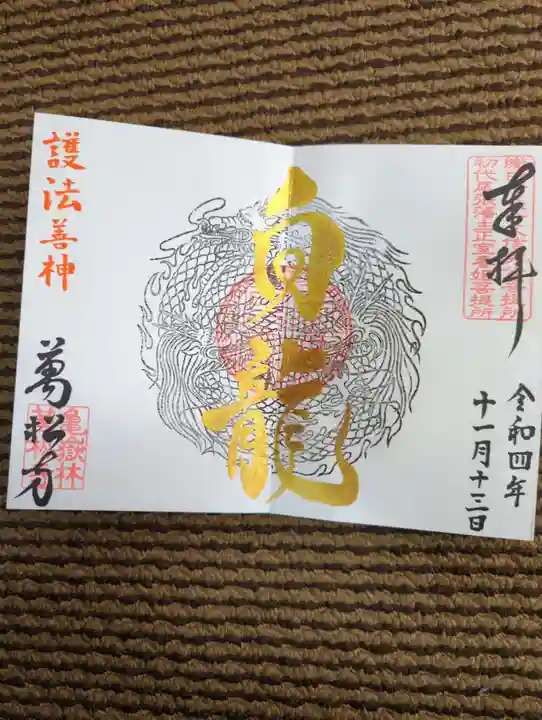 奉拝
初代尾張藩主正室春姫菩提所
令和四年
十一月十三日
白龍
護法善神
萬松寺
亀嶽林